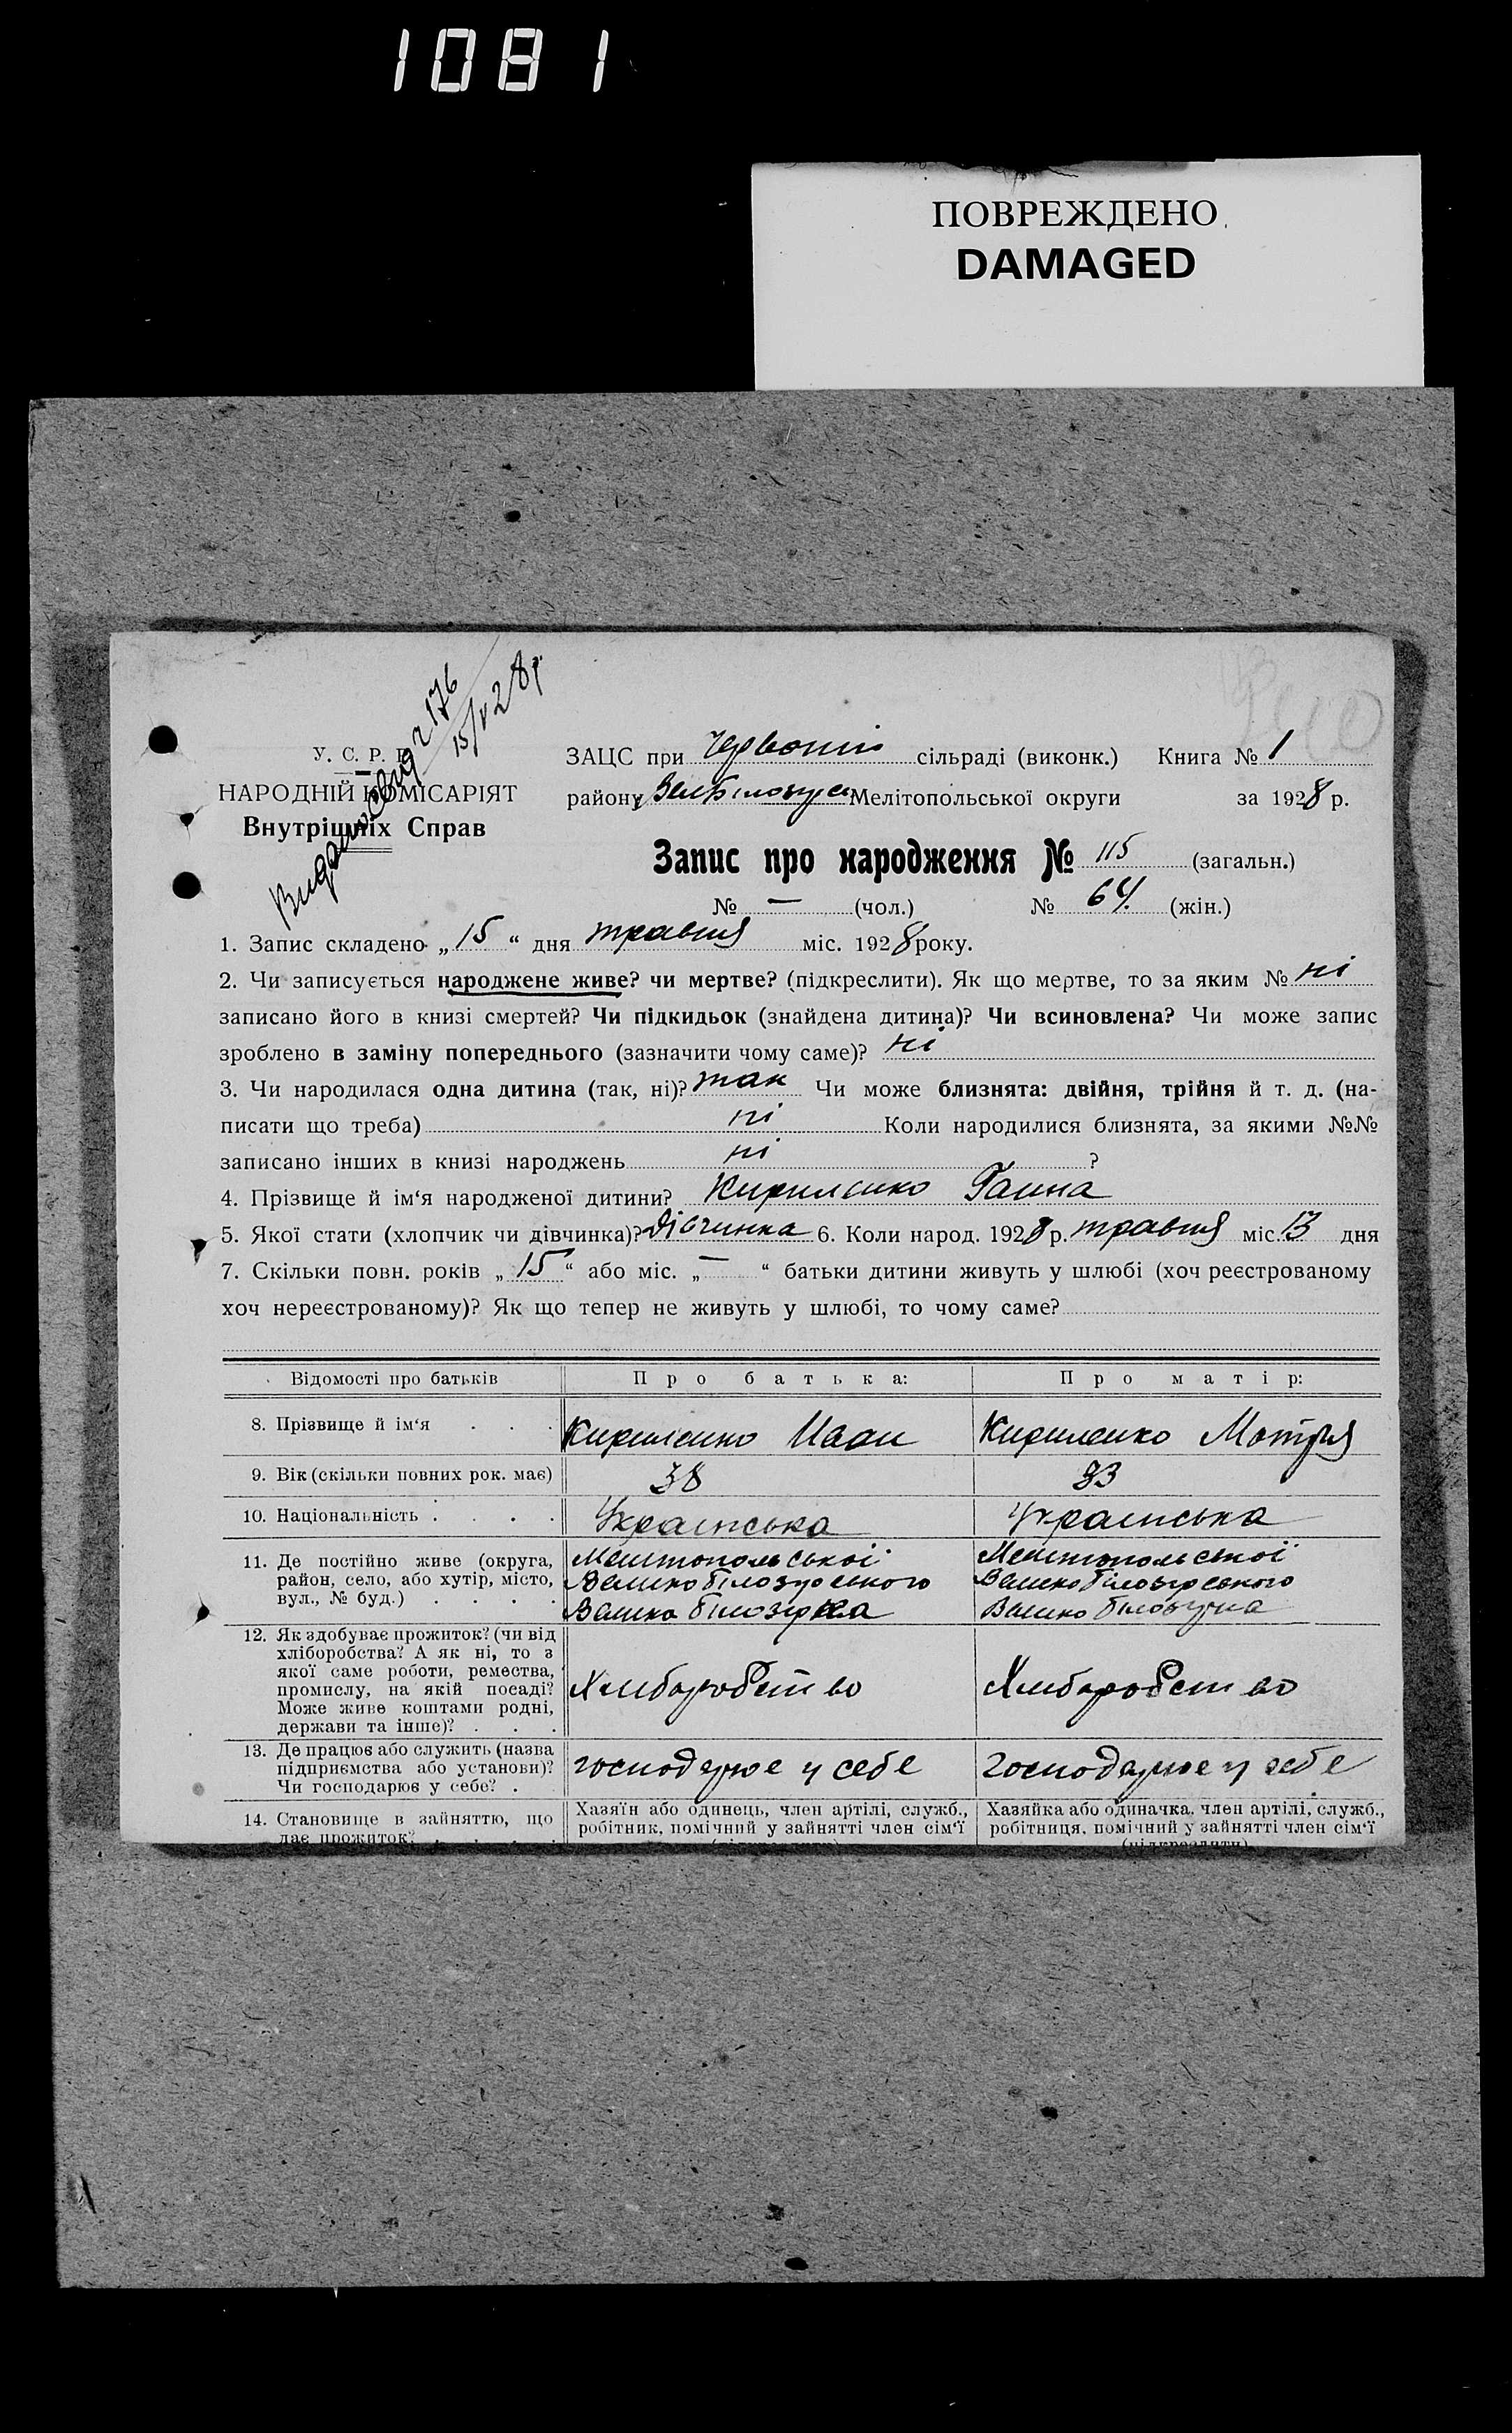 1081
ПОВРЕЖДЕНО
DAMAGED
У. С. Р. Р.
НАРОДНІЙ КОМІСАРІЯТ
Внутрішніх Справ
176
15/V 28 р.
ЗАЦС при Червоній сільраді (виконк.) Книга № 1
району Мелітопольської округи за 1928 р.
Запис про народження № 115 (загальн.)
№ — (чол.) № 64 (жін.)
1. Запис складено „15“ дня травня міс. 1928 року.
2. Чи записується народжене живе? чи мертве? (підкреслити). Як що мертве, то за яким № ні
записано його в книзі смертей? Чи підкидьок (знайдена дитина)? Чи всиновлена? Чи може запис
зроблено в заміну попереднього (зазначити чому саме)? ні
3. Чи народилася одна дитина (так, ні)? так Чи може близнята: двійня, трійня й т. д. (на-
писати що треба) ні Коли народилися близнята, за якими №№
записано інших в книзі народжень ні ?
4. Прізвище й ім‘я народженої дитини? Кириленко Ганна
5. Якої стати (хлопчик чи дівчинка)? Дівчинка 6. Коли народ. 1928 р. травня міс. 13 дня
7. Скільки повн. років „15“ або міс. „—“ батьки дитини живуть у шлюбі (хоч реєстрованому
хоч нереєстрованому)? Як що тепер не живуть у шлюбі, то чому саме?
Відомості про батьків Про батька: Про матір:
8. Прізвище й ім‘я . . . Кириленко Иван Кириленко Мотря
9. Вік (скільки повних рок. має) 38 33
10. Національність . . . . Українська Українська
11. Де постійно живе (округа, Мелітопольської Мелітопольської
район, село, або хутір, місто, Великобілозірського Великобілозірського
вул., № буд.) . . . . Велика Білозірка Велико Білозірка
12. Як здобуває прожиток? (чи від
хліборобства? А як ні, то з
якої саме роботи, ремества,
промислу, на якій посаді? Хліборобство Хліборобство
Може живе коштами родні,
держави та інше)? . . .
13. Де працює або служить (назва
підприємства або установи)? господарює у себе господарює у себе
Чи господарює у себе? .
14. Становище в зайняттю, що Хазяїн або одинець, член артілі, служб., Хазяйка або одиначка, член артілі, служб.,
дає прожиток? робітник, помічний у зайнятті член сім‘ї робітниця, помічний у зайнятті член сім‘ї
(підкреслити) (підкреслити)